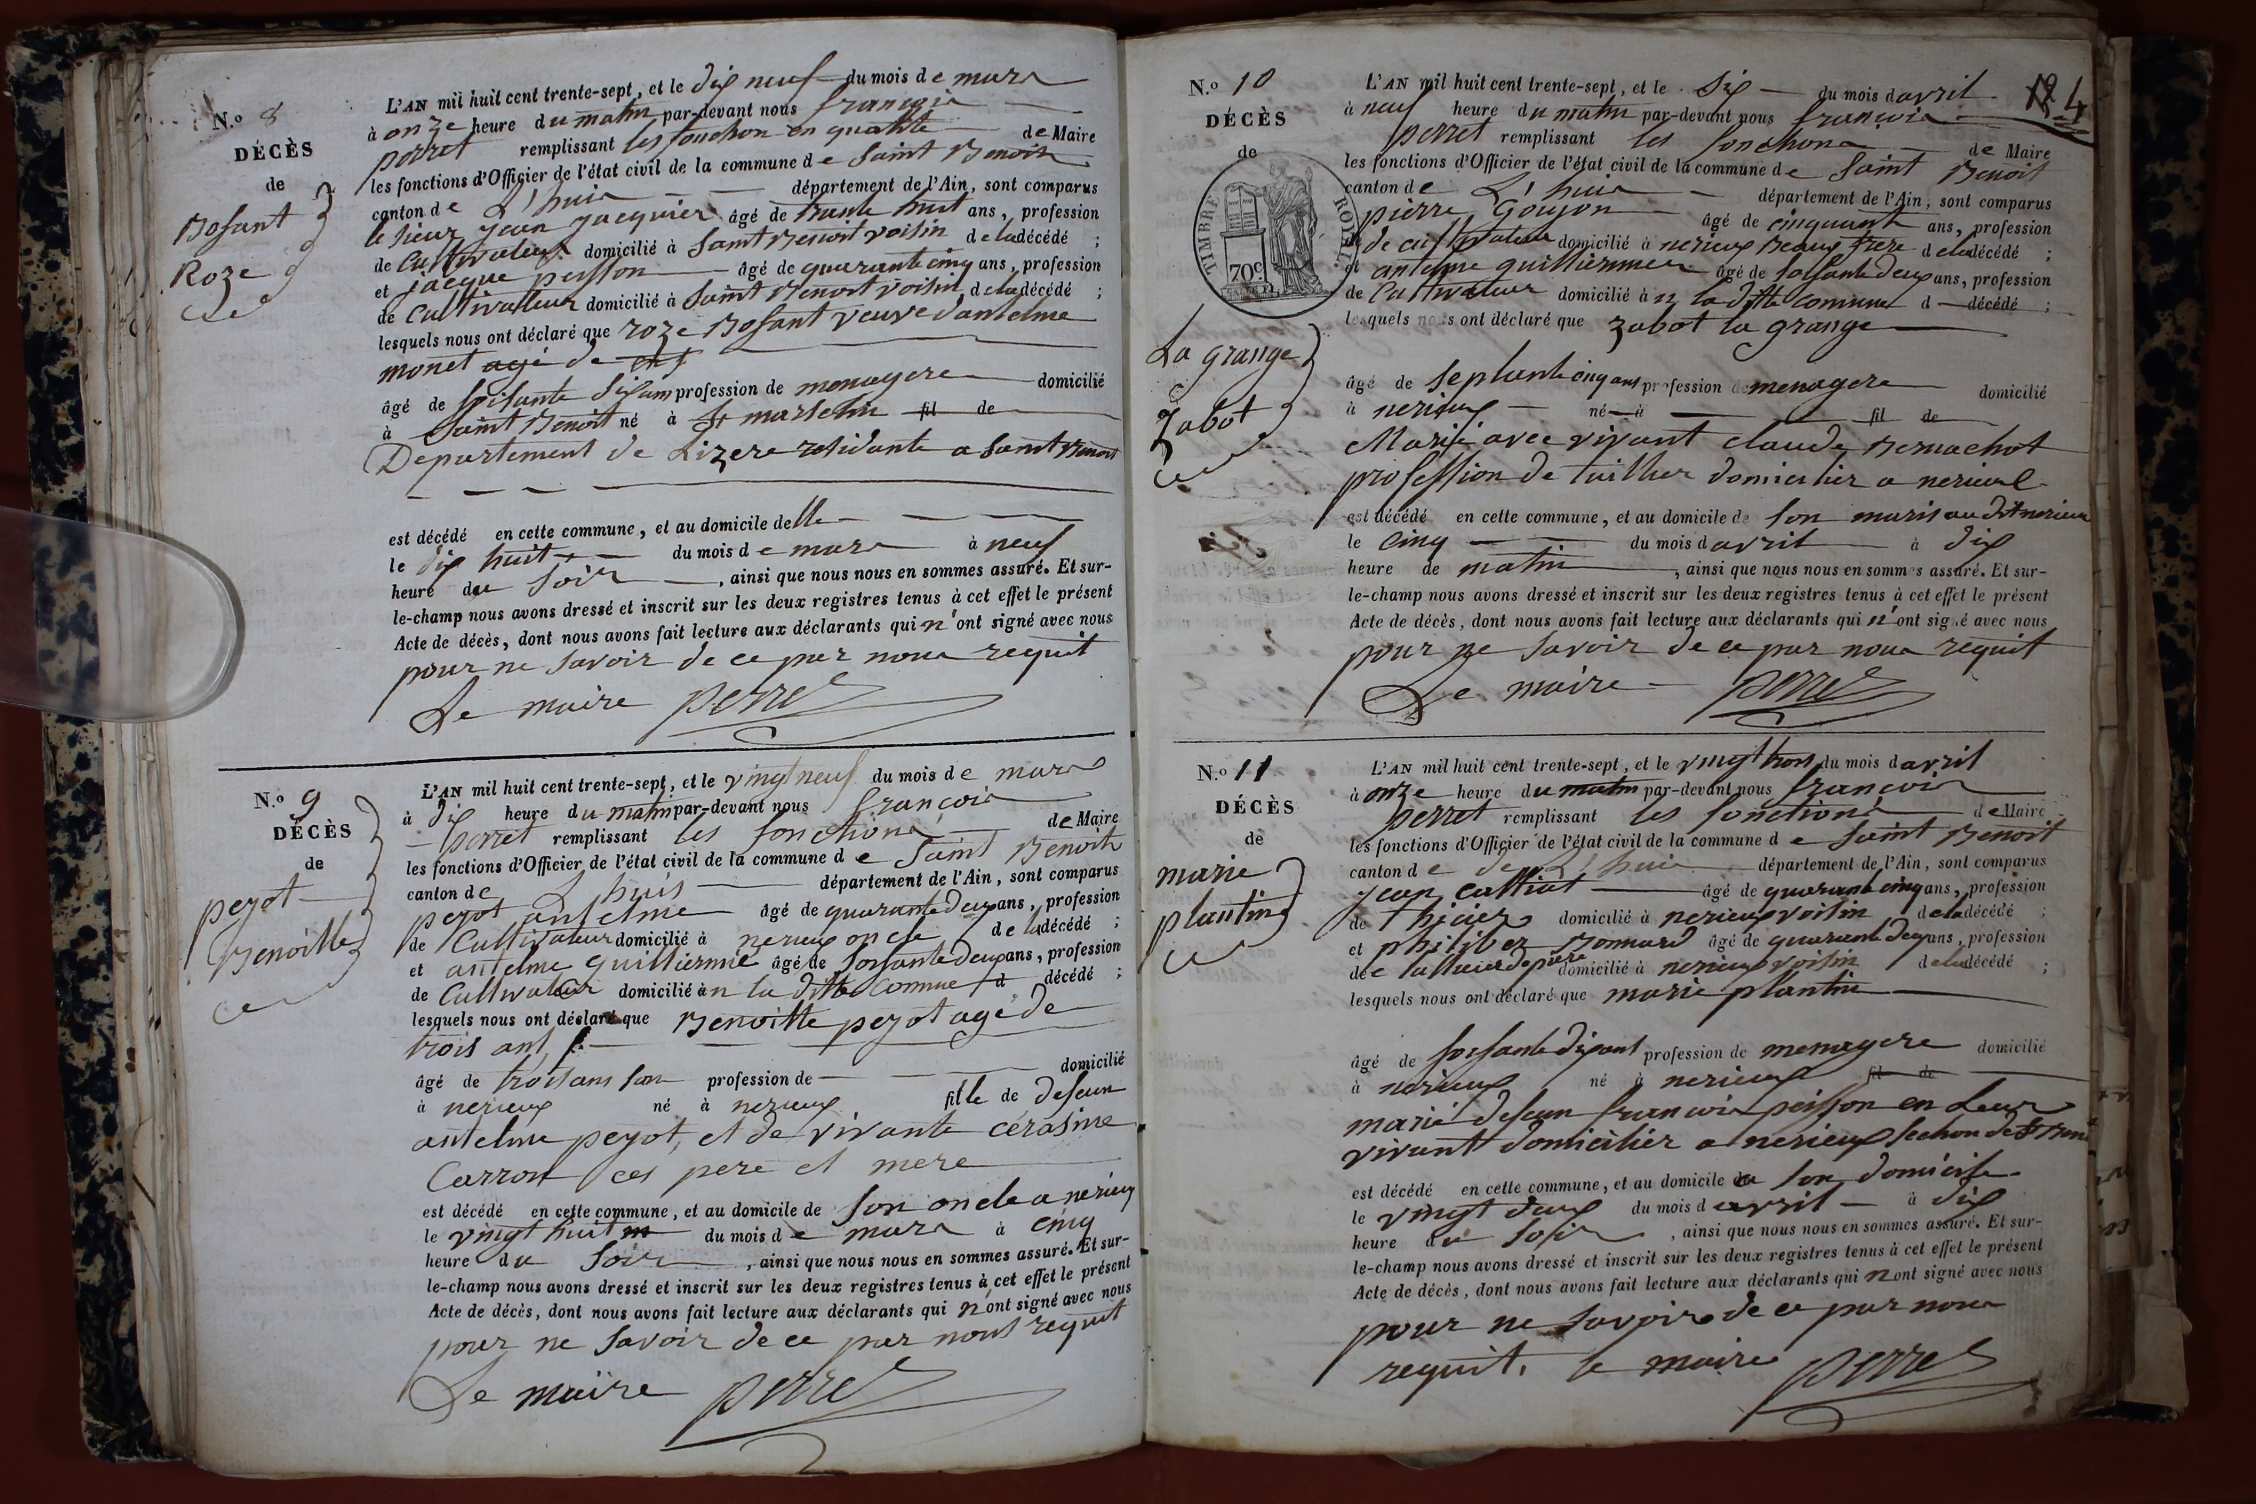 N.º 8
DÉCÈS
de
Bosant
Roze
L'AN mil huit cent trente-sept, et le dix neuf du mois de mars
à onze heure du matin par-devant nous françois
perret remplissant les fonction en qualité de Maire
les fonctions d'Officier de l'état civil de la commune de Saint Benoit
canton de L'huis département de l'Ain, sont comparus
le sieur Jean Jacquier âgé de trante huit ans, profession
de Cultivateur domicilié à Saint Benoit voisin de la décédé ;
et jacque peisson âgé de quarante cinq ans, profession
de Cultivateur domicilié à Saint Benoit voisin de la décédé ;
lesquels nous ont déclaré que roze Bosant veuve d'antelme
monet agé de
âgé de soisante six ans profession de menagere domicilié
à Saint Benoit né à St marselin fil de
Departement de Lizere residante a Saint Benoit
est décédé en cette commune, et au domicile delle
le dix huit du mois de mars à neuf
heure du soir, ainsi que nous nous en sommes assuré. Et sur-
le-champ nous avons dressé et inscrit sur les deux registres tenus à cet effet le présent
Acte de décès, dont nous avons fait lecture aux déclarants qui n'ont signé avec nous
pour ne savoir de ce par nous requit
Le maire perret
N.º 9
DÉCÈS
de
peyot
Benoitte
L'AN mil huit cent trente-sept, et le vingt neuf du mois de mars
à dix heure du matin par-devant nous françois
perret remplissant les fonctions de Maire
les fonctions d'Officier de l'état civil de la commune de Saint Benoit
canton de L'huis département de l'Ain, sont comparus
peyot antelme âgé de quarante deux ans, profession
de Cultivateur domicilié à nerieux oncle de la décédé ;
et antelme guillierme âgé de soisante deux ans, profession
de Cultivateur domicilié àn la ditte Commune d décédé ;
lesquels nous ont déclaré que Benoitte peyot agé de
trois ans
âgé de trois ans san profession de domicilié
à nerieux né à nerieux fille de defeun
antelme peyot, et de vivante cérasine
Carron ces pere et mere
est décédé en cette commune, et au domicile de son oncle a nerieux
le vingt huit du mois de mars à cinq
heure du soir, ainsi que nous nous en sommes assuré. Et sur-
le-champ nous avons dressé et inscrit sur les deux registres tenus à cet effet le présent
Acte de décès, dont nous avons fait lecture aux déclarants qui n'ont signé avec nous
pour ne savoir de ce par nous requit
Le maire perret
N.º 10
DÉCÈS
de
TIMBRE ROYAL
70c
La grange
Zabot
4
L'AN mil huit cent trente-sept, et le six du mois davril
à neuf heure du matin par-devant nous françois
perret remplissant les fonctions de Maire
les fonctions d'Officier de l'état civil de la commune de Saint Benoit
canton de L'huis département de l'Ain, sont comparus
pierre Goujon âgé de cinquante ans, profession
de cultivateur domicilié à nerieux Beaux frere de la décédé ;
et antelme guillierme âgé de soisante deux ans, profession
de Cultivateur domicilié àn la ditte commune d décédé ;
lesquels nous ont déclaré que Zabot la grange
âgé de septante cinq ans profession de menagere domicilié
à nerieux né à fil de
Marié avec vivant claude Bernachot
profession de tuillier domicilier a nerieux
est décédé en cette commune, et au domicile de son maris au dit nerieux
le cinq du mois davril à dix
heure de matin, ainsi que nous nous en sommes assuré. Et sur-
le-champ nous avons dressé et inscrit sur les deux registres tenus à cet effet le présent
Acte de décès, dont nous avons fait lecture aux déclarants qui n'ont signé avec nous
pour ne savoir de ce par nous requit
Le maire perret
N.º 11
DÉCÈS
de
marie
plantin
L'AN mil huit cent trente-sept, et le vingt trois du mois davril
à onze heure du matin par-devant nous françois
perret remplissant les fonctions de Maire
les fonctions d'Officier de l'état civil de la commune de Saint Benoit
canton de L'huis département de l'Ain, sont comparus
Jean Calliat âgé de quarante cinq ans, profession
de domicilié à nerieux voisin de la décédé ;
et philiber Bonnard âgé de quarante deux ans, profession
de tallieur de piere domicilié à nerieux voisin de la décédé ;
lesquels nous ont déclaré que marie plantin
âgé de soisante dix ans profession de menagere domicilié
à nerieux né à nerieux fil de
marié defeun francois peisson en leur
vivant domicilier a nerieux section de St Benoit
est décédé en cette commune, et au domicile de son domicile
le vingt deux du mois davril à dix
heure du soir, ainsi que nous nous en sommes assuré. Et sur-
le-champ nous avons dressé et inscrit sur les deux registres tenus à cet effet le présent
Acte de décès, dont nous avons fait lecture aux déclarants qui n'ont signé avec nous
pour ne savoir de ce par nous
requit. le maire perret